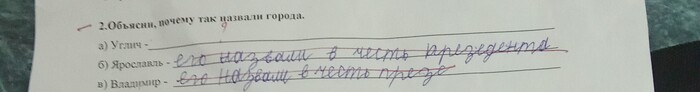 2.Объясни, почему так назвали города.
а) Углич -
б) Ярославль - его назвали в честь презедента
в) Владимир - его назвали в честь презе